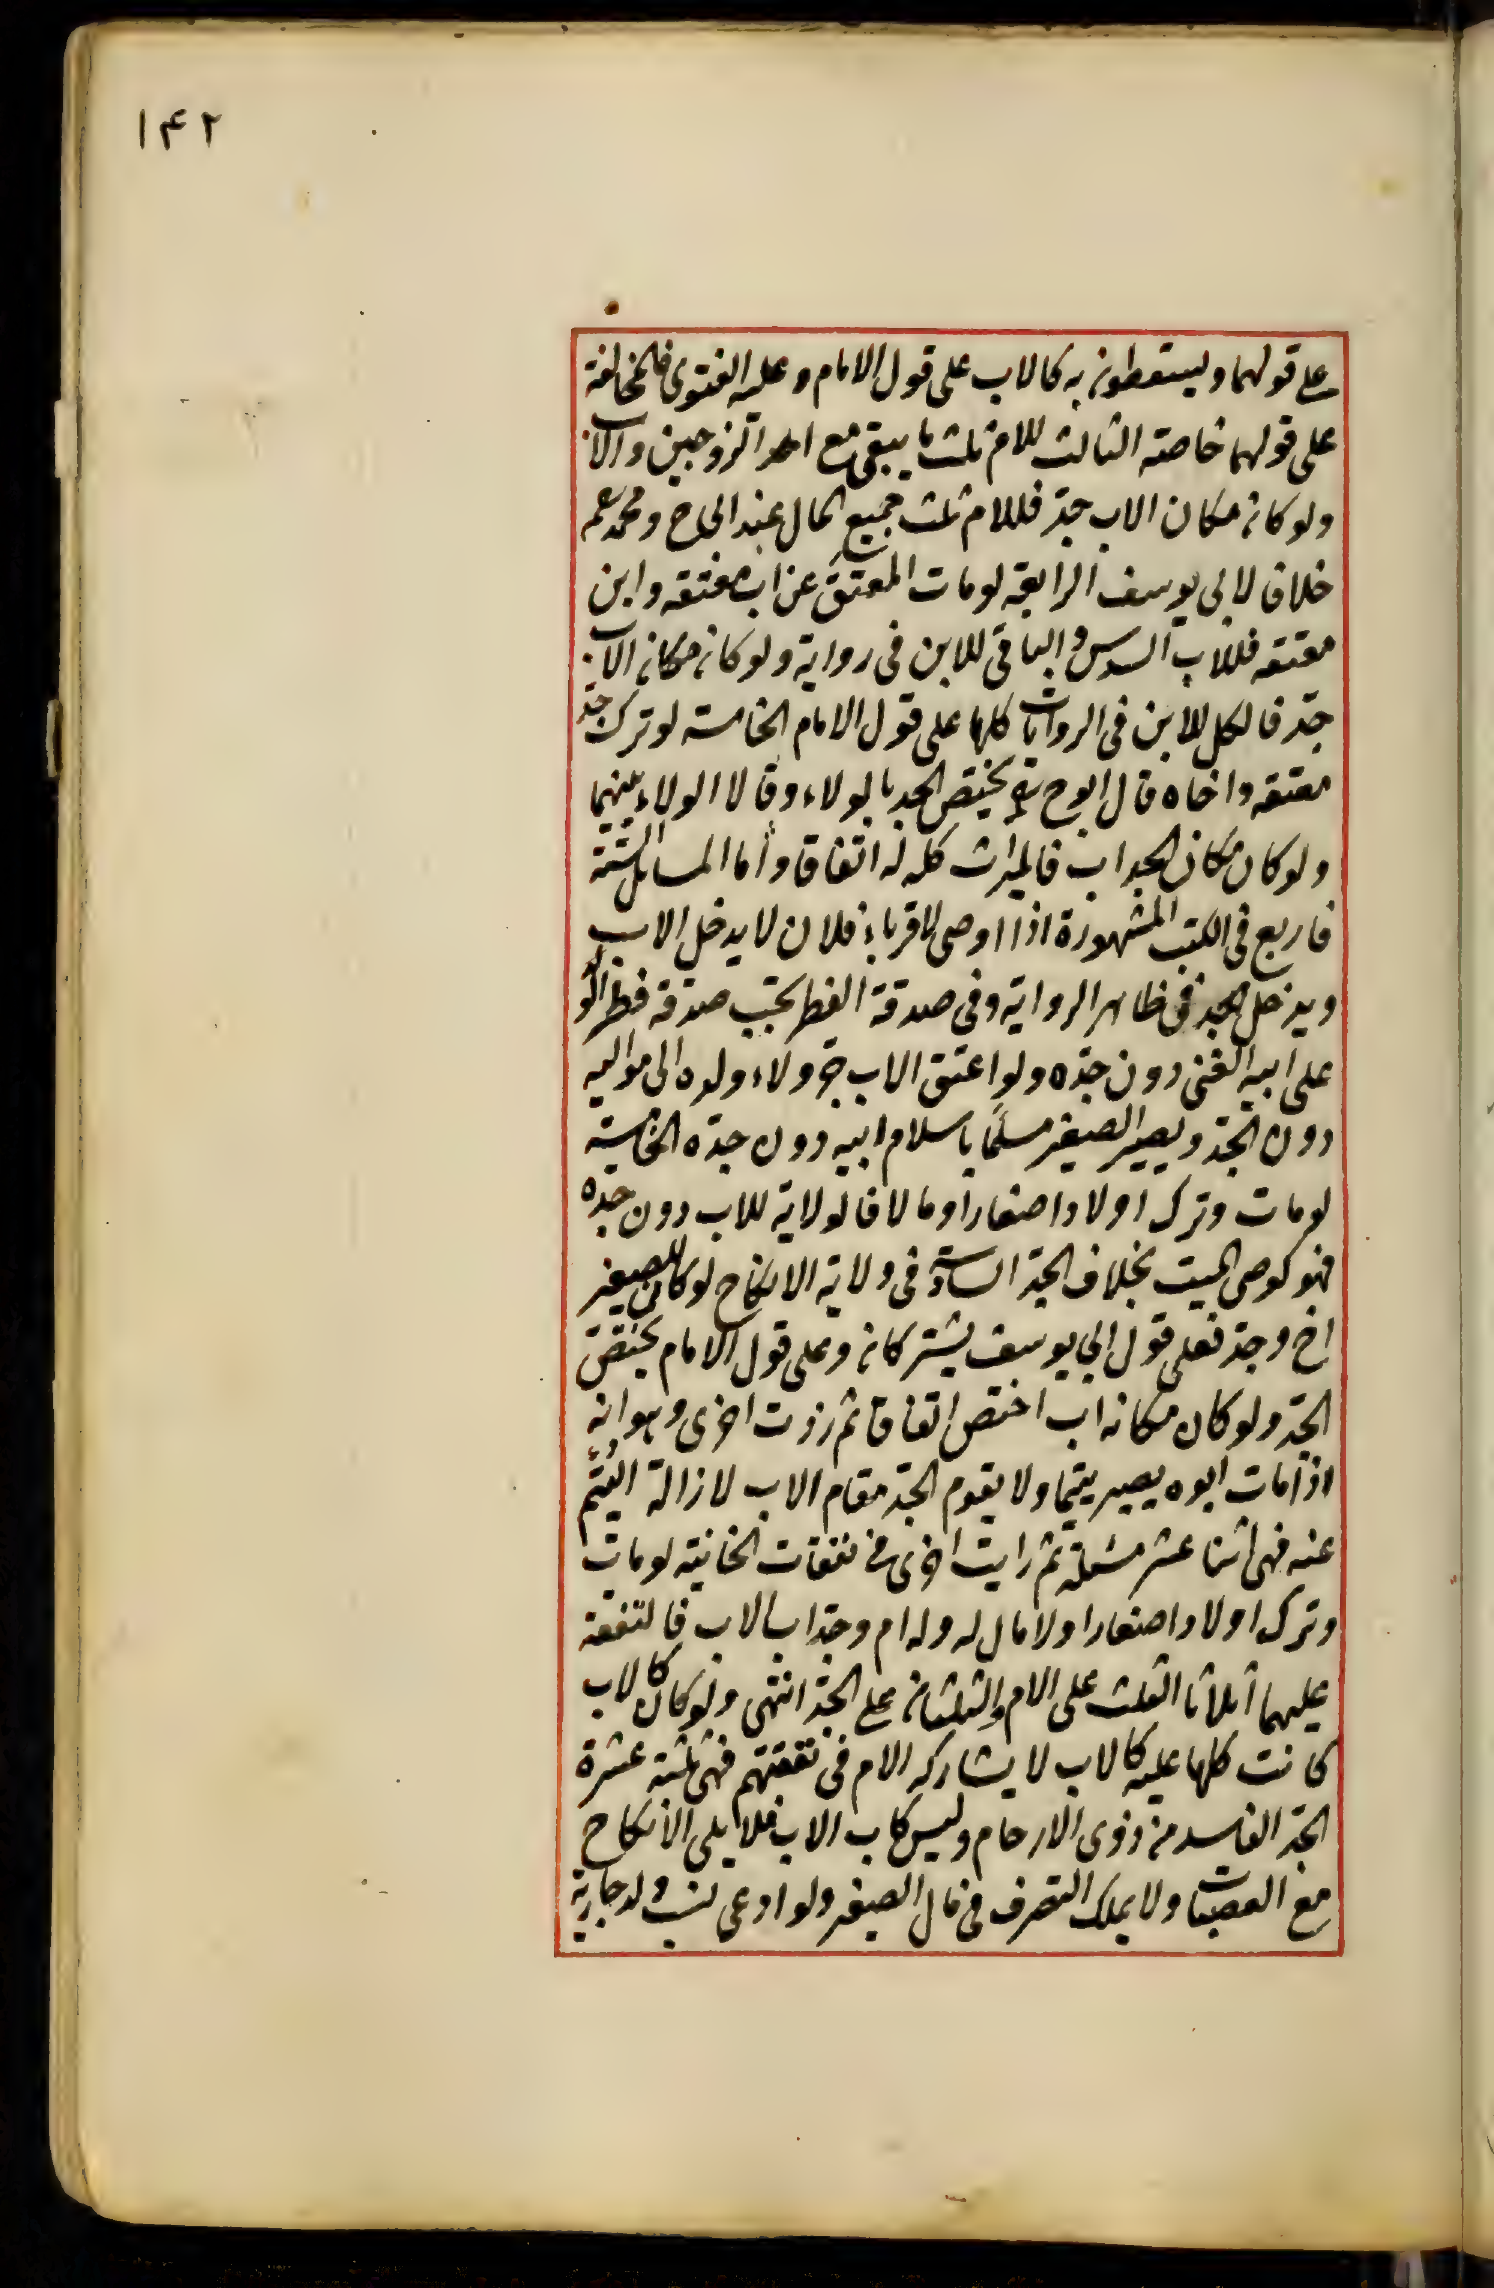 ۱۴۲
على قولهما ويسقطون به كالاب على قول الامام وعليه الفتوى فالمخالفة
على قولهما خاصة الثالث للام ثلث ما يبقى مع احد الزوجين والاب
ولو كان مكان الاب جد فللام ثلث جميع المال عند ابى ح ومحمد
خلافا لابى يوسف الرابعة لو مات المعتق عن اب معتقه وابن
معتقه فللاب السدس والباقى للابن فى رواية ولو كان مكان الاب
جد فالكل للابن فى الروايات كلها على قول الامام الخامسة لو ترك جد
معتقه واخاه قال ابو ح يختص الجد بالولاء وقالا الولاء بينهما
ولو كان مكان الجد اب فالميراث كله له اتفاقا واما المسائل الستة
فاربع فى الكتب المشهورة اذا اوصى لاقرباء فلان لا يدخل الاب
ويدخل الجد فى ظاهر الرواية وفى صدقة الفطر تجب صدقة فطر الولد
على ابيه الغنى دون جده ولو اعتق الاب جر ولاء ولده الى مواليه
دون الجد ويصير الصغير مسلما باسلام ابيه دون جده الخامسة
لو مات وترك اولادا صغارا ومالا فالولاية للاب دون جده
فهو كوصى الميت بخلاف الجد السادسة فى ولاية الانكاح لو كان للصغير
اخ وجد فعلى قول ابى يوسف يشتركان وعلى قول الامام يختص
الجد ولو كان مكانه اب اختص اتفاقا ثم زدت اخرى وهو انه
اذا مات ابوه يصير يتيما ولا يقوم الجد مقام الاب لازالة اليتم
عنه فهى اثنا عشر مسئلة ثم رايت اخرى فى نفقات الخانية لو مات
وترك اولادا صغارا ولا مال له وله ام وجد اب الاب فالنفقة
عليهما اثلاثا الثلث على الام والثلثان على الجد انتهى ولو كان كالاب
كانت كلها عليه كالاب لا يشاركه الام فى نفقتهم فهى ثلثة عشرة
الجد الفاسد من ذوى الارحام وليس كاب الاب فلا يلى الانكاح
مع العصبات ولا يملك التصرف فى مال الصغير ولو ادعى نسب ولد جارية